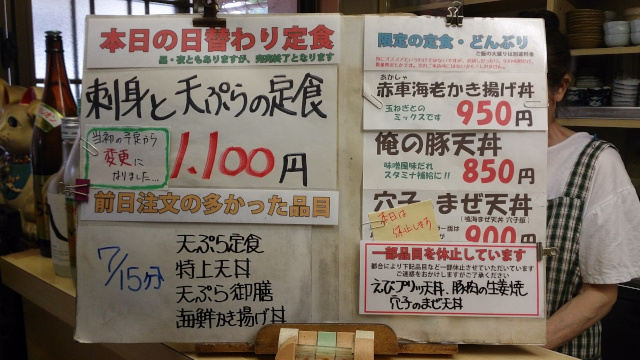 本日の日替わり定食
昼・夜ともありますが、完売終了となります
刺身と天ぷらの定食
当初の予定から
変更に
なりました…
1,100円
前日注文の多かった品目
7/15分
天ぷら定食
特上天丼
天ぷら御膳
海鮮かき揚げ丼
限定の定食・どんぶり
ご飯の大盛りは別途料金
あかしゃ
赤車海老かき揚げ丼
玉ねぎとの
ミックスです
950円
俺の豚天丼
味噌風味だれ
スタミナ補給に!!
850円
穴子 まぜ天丼
(鳴海まぜ天丼 穴子版)
900円
本日は
休止します
一部品目を休止しています
都合により下記品目など一部休止させていただいています
ご迷惑をおかけしますがご了承ください
えびアリッ天丼、豚肉の生姜焼
穴子のまぜ天丼